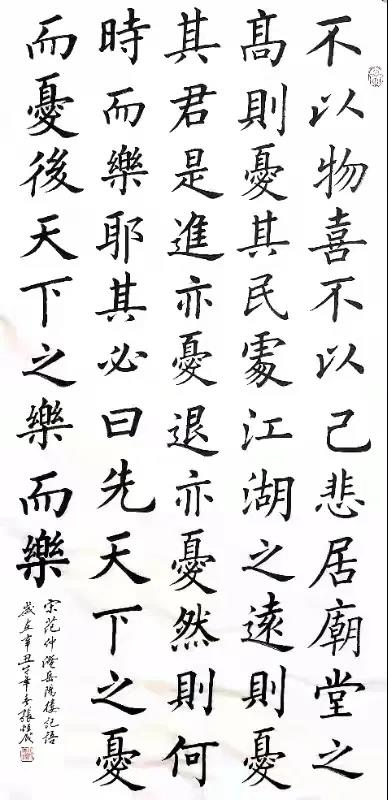 不以物喜不以己悲居廟堂之
髙則憂其民處江湖之遠則憂
其君是進亦憂退亦憂然則何
時而樂耶其必曰先天下之憂
而憂後天下之樂而樂
宋范仲淹岳陽樓記語
歲在辛丑